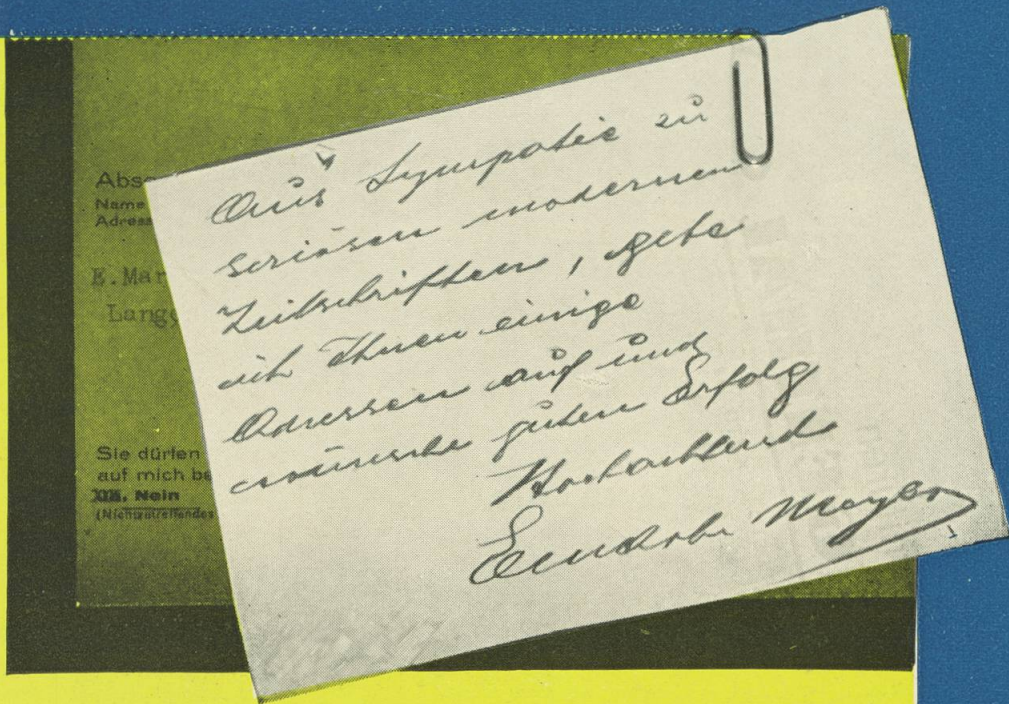 Abs
Name
Adress
E.Mar
Lang
Sie dürfen
auf mich be
Nein
(Nichtzutreffendes
Aus Sympatie zu
seriösen modernen
Zeitschriften, gebe
ich Ihnen einige
Adressen auf und
wünsche guten Erfolg
Hochachtend
Meyer